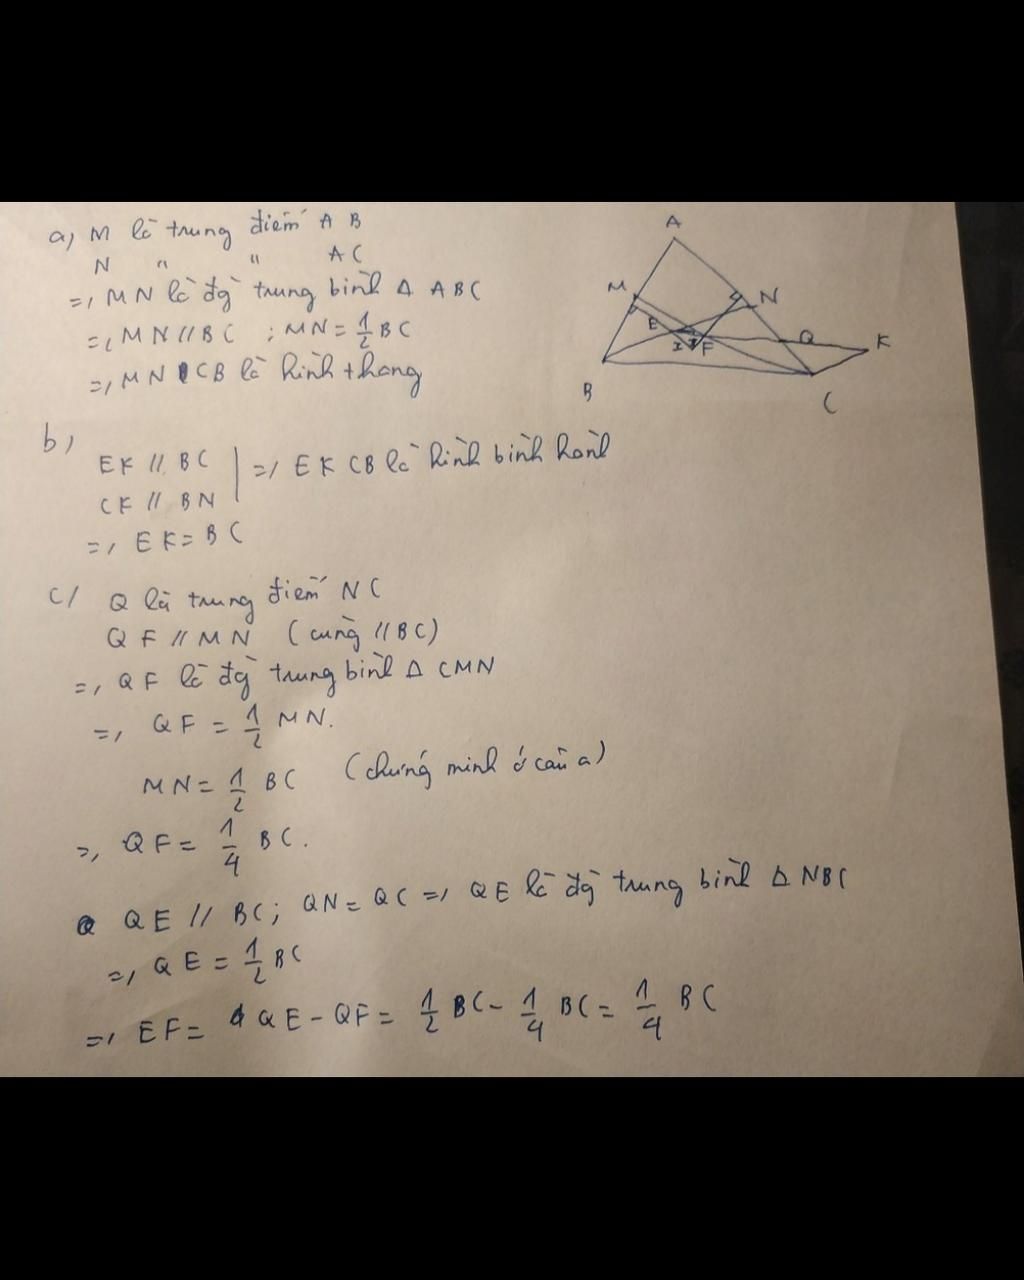 a, M là trung điểm A B
N " " A C
=, MN là đg trung bình Δ ABC
=, MN // BC ; MN = 1/2 BC
=, MN CB là hình thang
A
M
N
E
I
F
Q
K
B
C
b,
EK // BC
CK // BN
=, EK CB là hình bình hành
=, EK = BC
c/ Q là trung điểm NC
QF // MN (cùng // BC)
=, QF là đg trung bình Δ CMN
=, QF = 1/2 MN.
MN = 1/2 BC (chứng minh ở câu a)
=, QF = 1/4 BC.
QE // BC; QN = QC =, QE là đg trung bình Δ NBC
=, QE = 1/2 BC
=, EF = QE - QF = 1/2 BC - 1/4 BC = 1/4 BC